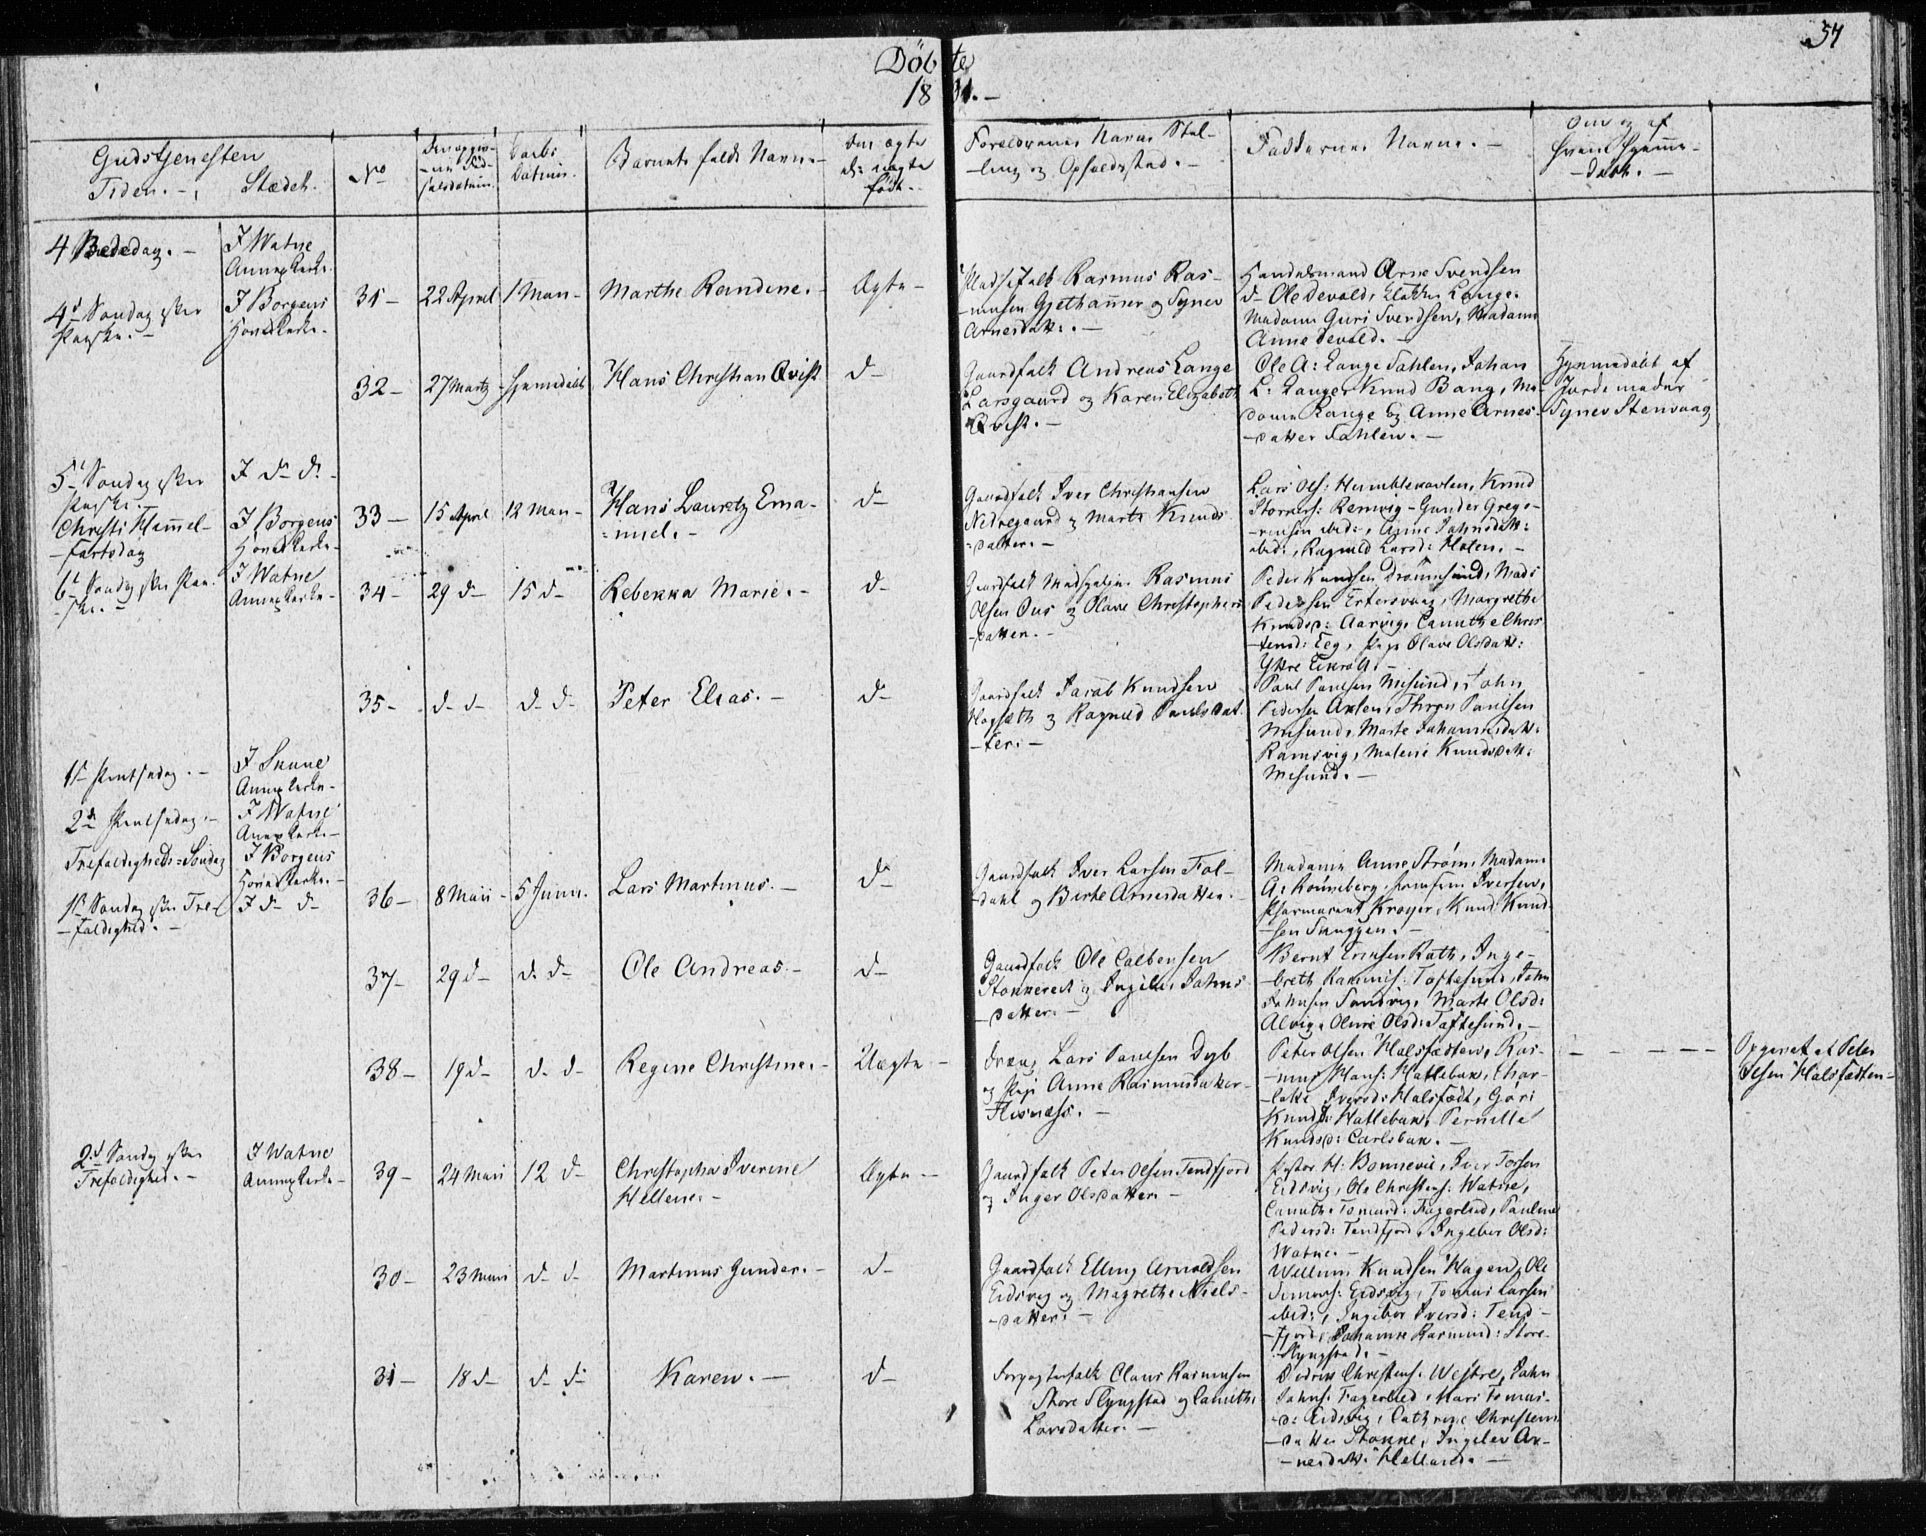 57
Döbte
1831.-
Gudstjenesten
Tiden. - Stædet.
No
Daabs
Datum.
Barnets fulde Navn. -
Om ægte
el: uægte
født. -
Foreldrenes Navne Stil-
-ling og Opholdsstad. -
Faddernes Navne. -
Om og af
hvem hjemme-
-døbt. -
4 Bededag. -
I Watne
Annexkirke.
4de Søndag efter
Paaske. -
I Borgens
Hovedkirke. -
31 - 22 April 1 Maii - Marthe Randine. - Ægte -
Pladsefolk Rasmus Ras-
-musen Gjethammer og Synev
Arnesdatt:. -
Handelsmand Arne Svendsen
Madame Guri Svendsen, Madame
Anne Devold. -
32 - 27 Martz hjemdøbt Hans Christian Qvist d-
Gaardfolk Andreas Lange
Larsgaard og Karen Elizabeth
Qvist. -
Ole A: Lange Dahlen, Johan
L: Lange, Knud Bang, Ma-
dame Lange og Anne Arnes-
-datter Dahlen. -
Hjemmedøbt af
Jordemoder
Synev Stenvaag
5te Søndag efter
Paaske. -
I d- d. -
Christi Himmel-
-fartsdag
I Borgens
Hovedkirke -
33 - 15 April 12 Maii - Hans Lauretz Ema-
=nuel. - d-
Gaardfolk Iver Christiansen
Nedregaard og Marte Knuds-
=datter. -
Lars Ols: Humblekorlen, Knud
Remvig - Gunder Grego-
-riusen ibid:, Anne Johnsdatt:
ibid:, Ragnild Larsd: Holen. -
6te Søndag efter Paa-
-ske. -
I Watne
Annexkirke -
34 - 29 d- 15 d- Rebekka Marie. - d-
Rasmus
Olsen Ous og Olave Christophers
-datter. -
Peder Knudsen Drömmesund, Mads
Pedersen Ertesvaag, Margrethe
Knudsd: Aarvig, Canuthe Chris-
tensd: Eeg, Pige Olave Olsdatt:
Yttre Eikrott. -
35 - d- d- d- d- Peter Elias. - d-
Gaardfolk Jacob Knudsen
Hagsæth og Ragnild Paulsdat-
-ter. -
Paul Paulsen Misund, John
Pedersen Axlen, Paulsen
Misund, Marte Johannesdatt:
Ramsvig, Malene Knudsdatt:
Misund. -
1ste Pintsedag. -
Annexkirke -
2den Pintsedag. -
I Watne
Annexkirke -
Trefoldigheds=Søndag
I Borgens
Hovedkirke. -
1ste Søndag efter Tre-
-foldighed. -
I d- d-
36 - 8 Maii - 5 Junii. Lars Martinus. - d-
Gaardfolk Iver Larsen Fol-
-dahl og Birte Arnesdatter.
Madame Anne Strøm, Madame
A: Rönneberg, Jomfrue Iversen,
Pharmaceut Krøyer, Knud Knud-
-sen
37 - 29 d- d- d- Ole Andreas. - d-
Gaardfolk Ole Colbensen
Stokkereit og Ingeles Johns-
-datter. -
Bernt Erichsen Roth, Inge-
-breth Taftesund, John
Johnsen Sandvig, Marte Olsd:
Alvig, Olivie Olsd: Taftesund. -
38 - 19 d- d- d- Regine Christine. - Uægte -
Dreng Lars Paulsen Dyb
og Pige Anne Rasmusdatter
Flisnæss. -
Peter Olsen Halsfædten, Ras-
-mus Hans: Hatlebak, Char-
-lotte Iversd: Halsfædt, Göri
Knudsd: Hatlebak, Pernille
Knudsd: Carlsbak. -
- - - -
Opgivet at Peter
Olsen Halsfædten -
2den Søndag efter
Trefoldighed. -
I Watne
Annexkirke -
39 - 24 Maii 12 d- Christopha Iverine
Hellene. - Ægte -
Gaardfolk Peter Olsen Tendfjord
og Inger Olsdatter. -
Pastor H: Bonnevie, Iver Torsen
Eidsvig, Ole Christens: Watne,
Canuthe Tomasd: Fagerlied, Pauline
Pedersd: Tendfjord, Ingebor Olsd:
Watne. -
30 - 23 Maii d- d- Martinus Gunder. - d-
Gaardfolk Elling Arnoldsen
Eidsvig og Magrethe Niels-
-datter. -
Willum Knudsen Hagen, Ole
Simons: Eidsvig, Tomas Larsen
ibid:, Ingebor Iversd: Tend-
-fjord, Johanne Rasmusd: Store
Slyngstad. -
31 - 18 d- d- d- Karen. - d-
Forpagterfolk Claus Rasmusen
Store Slyngstad og Canuthe
Larsdatter. -
Didrik Christens: Westre, John
Johns: Fagerlied, Mari Tomas-
-d: Eidsvig, Cathrine Christens-
-datter Stokke, Ingelev Ar-
-nesdatt: Helland. -